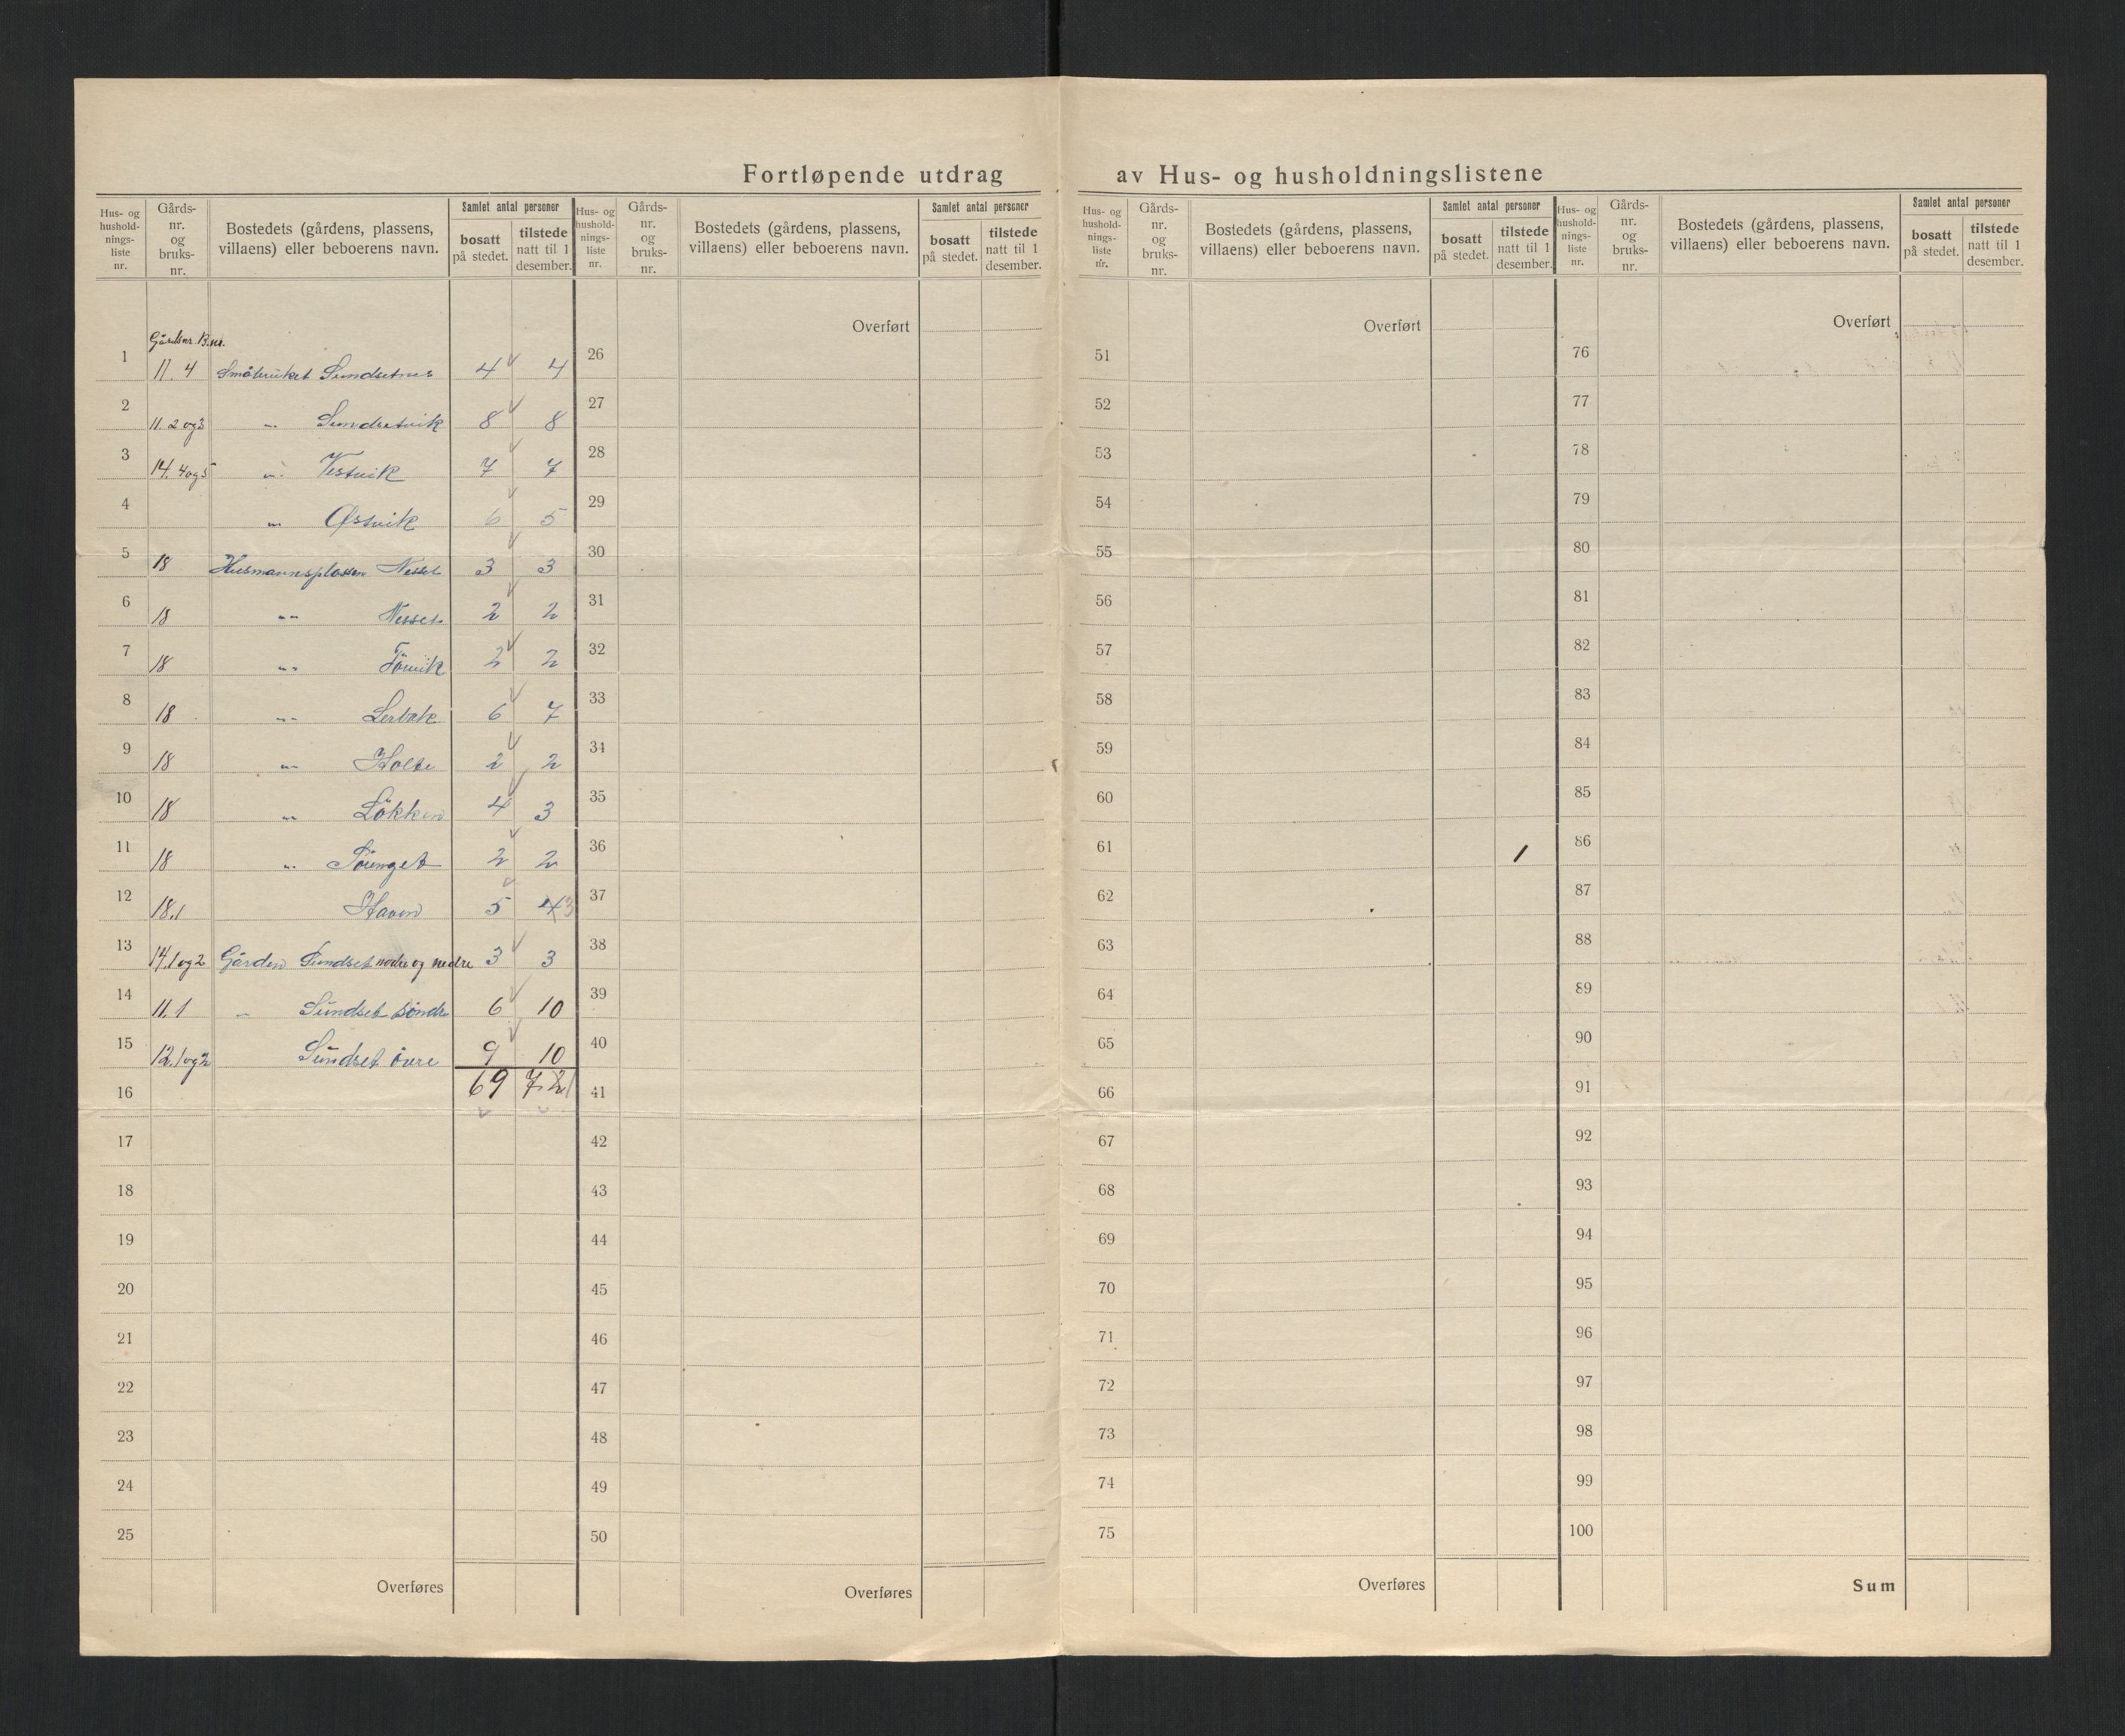 Fortløpende utdrag av Hus- og husholdningslistene
Hus- og hushold-nings-liste nr.
Gårds-nr. og bruks-nr.
Bostedets (gårdens, plassens, villaens) eller beboerens navn.
Samlet antal personer
bosatt på stedet.
tilstede natt til 1 desember.
Hus- og hushold-nings-liste nr.
Gårds-nr. og bruks-nr.
Bostedets (gårdens, plassens, villaens) eller beboerens navn.
Samlet antal personer
bosatt på stedet.
tilstede natt til 1 desember.
Hus- og hushold-nings-liste nr.
Gårds-nr. og bruks-nr.
Bostedets (gårdens, plassens, villaens) eller beboerens navn.
Samlet antal personer
bosatt på stedet.
tilstede natt til 1 desember.
Hus- og hushold-nings-liste nr.
Gårds-nr. og bruks-nr.
Bostedets (gårdens, plassens, villaens) eller beboerens navn.
Samlet antal personer
bosatt på stedet.
tilstede natt til 1 desember.
Gårdsnr. B.nr.
1 11. 4 Småbruket Sundsetnes 4 4
2 11. 2 og 3 " Sundsetvik 8 8
3 14. 4 og 5 " Vestvik 7 7
4 " Østvik 6 5
5 18 Husmannsplassen Nesset 3 3
6 18 " Nesset 2 2
7 18 " 2 2
8 18 " Lerbak 6 7
9 18 " Holte 2 2
10 18 " Løkken 4 3
11 18 " 2 2
12 18.1 Haven 5 4 3
13 14.1 og 2 Gården Sundset nordre og nedre 3 3
14 11. 1 " Sundset søndre 6 10
15 12.1 og 2 Sundset övre 9 10
16 69 72 1
17
18
19
20
21
22
23
24
25
Overføres
Overført
26
27
28
29
30
31
32
33
34
35
36
37
38
39
40
41
42
43
44
45
46
47
48
49
50
Overføres
Overført
51
52
53
54
55
56
57
58
59
60
61
62
63
64
65
66
67
68
69
70
71
72
73
74
75
Overføres
Overført
76
77
78
79
80
81
82
83
84
85
86
87
88
89
90
91
92
93
94
95
96
97
98
99
100
Sum